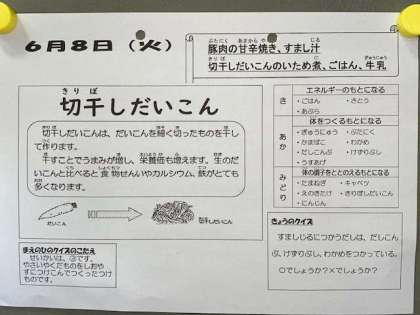 6月8日（火）
豚肉の甘辛焼き、すまし汁
切干しだいこんのいため煮、ごはん、牛乳
切干しだいこん
切干しだいこんは、だいこんを細く切ったものを干し
て作ります。
干すことでうまみが増し、栄養価も増えます。生のだ
いこんと比べると食物せんいやカルシウム、鉄がとても
多くなります。
にんじん
切干しだいこん
エネルギーのもとになる
き
・ごはん ・さとう
・あぶら
体をつくるもとになる
あか
・ぎゅうにゅう ・ぶたにく
・かまぼこ ・わかめ
・だしこんぶ ・けずりぶし
・うすあげ
体の調子をととのえるもとになる
みどり
・たまねぎ ・キャベツ
・えのきたけ ・きりぼしだいこん
・にんじん
まえのひのクイズのこたえ
せいかいは、②です。
やさいやくだものをしおや
すにつけこんでつくったつけ
ものです。
きょうのクイズ
すましじるにつかうだしは、だしこん
ぶ、けずりぶし、わかめをつかっている。
〇でしょうか？×でしょうか？